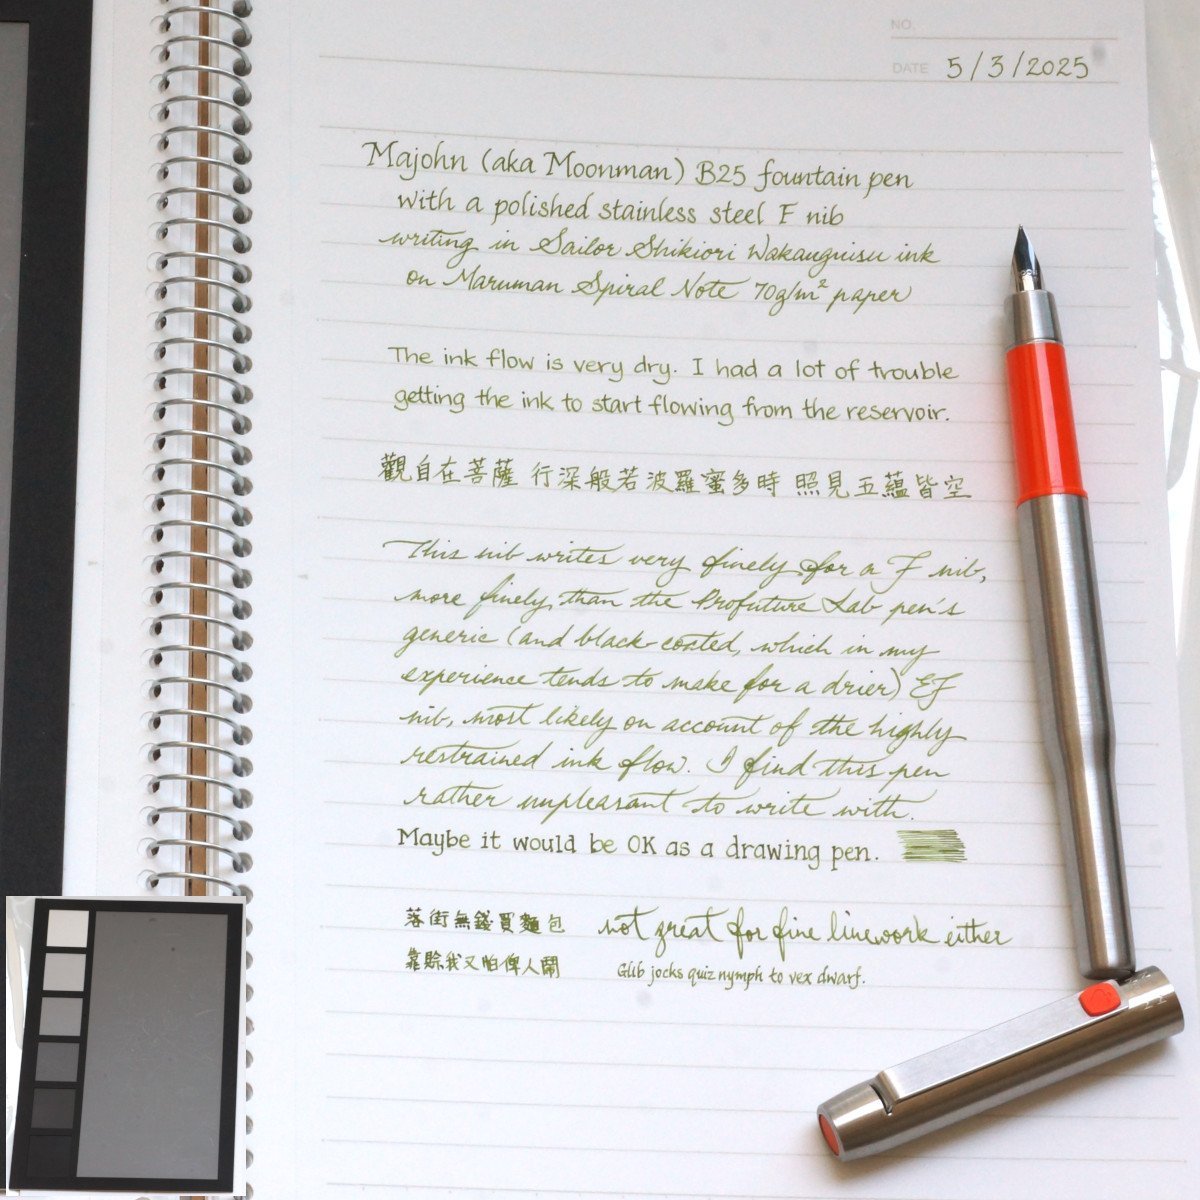 NO.
DATE 5/3/2025
Majohn (aka Moonman) B25 fountain pen
with a polished stainless steel F nib
writing in Sailor Shikiori Wakauguisu ink
on Maruman Spiral Note 70g/m² paper
The ink flow is very dry. I had a lot of trouble
getting the ink to start flowing from the reservoir.
觀自在菩薩 行深般若波羅蜜多時 照見五蘊皆空
This nib writes very finely for a F nib,
more finely than the Profuture Lab pen's
generic (and black-coated, which in my
experience tends to make for a drier) EF
nib, most likely on account of the highly
restrained ink flow. I find this pen
rather unpleasant to write with.
Maybe it would be OK as a drawing pen.
落街無錢買麵包 not great for fine linework either
靠賒我又怕俾人鬧 Glib jocks quiz nymph to vex dwarf.